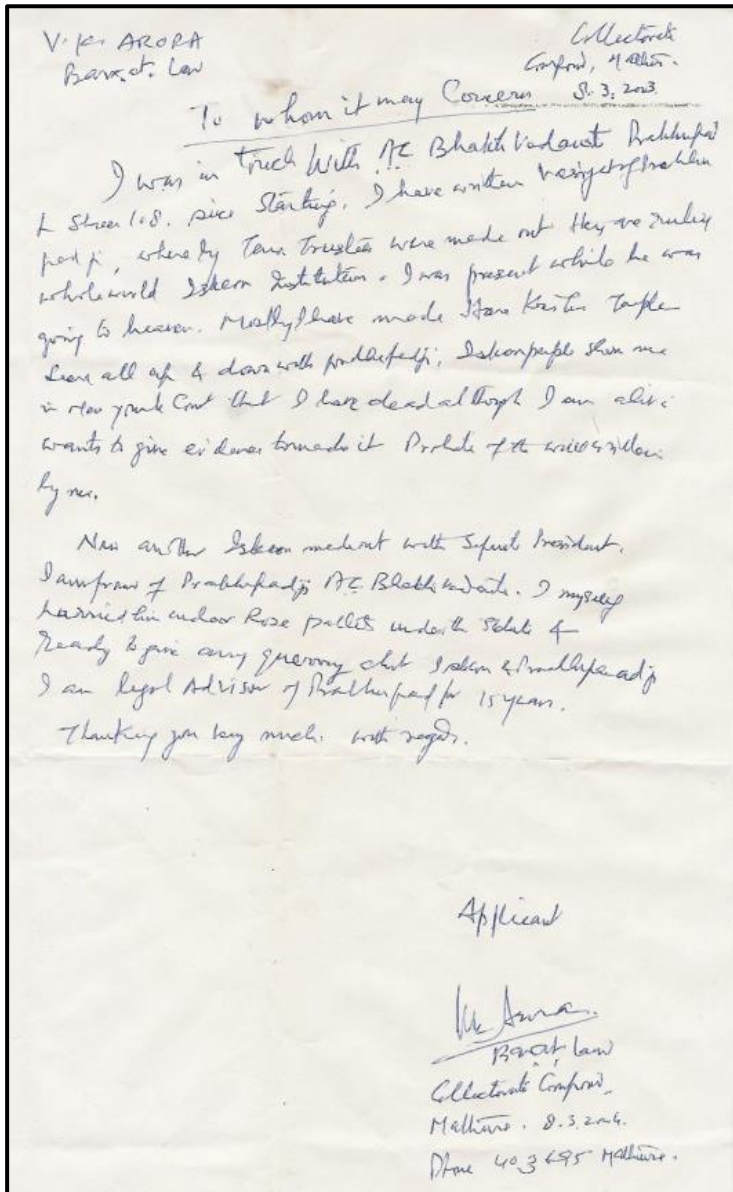 V. K. ARORA
Bar. at. Law
Collectorate
Compound, Mathura.
8. 3. 2003
To whom it may Concern
I was in Touch With AC Bhakti Vedanta Prabhupad
since Starting. I have written
where by Trustees were made out they are ruling
whole world Iskcon Institution. I was present while he was
going to heaven. Mostly I have made Hare Krishna Temple
all up & down with prabhupadji, Iskcon people show me
in New york Court that I have dead although I am alive
wants to give evidence to made it Probate of the will written
by me.
Now another Iskcon made out with President.
I am of Prabhupadji AC Bhakti Vedanta. I myself
him under Rose under the &
Ready to give any about Iskcon & Prabhupadji
I am legal Advisor of Prabhupad for 15 years.
Thanking you very much. with regards.
Applicant
VK Arora
Bar at Law
Collectorate Compound,
Mathura. 8. 3. 2004.
Phone 403695 Mathura.